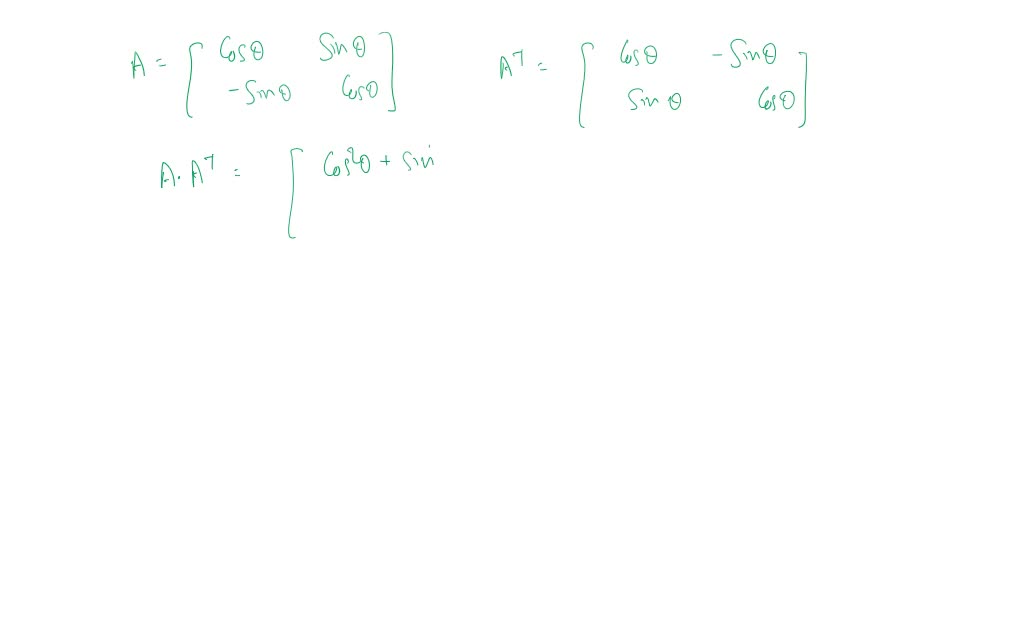 A = [ Cosθ Sinθ
-Sinθ Cosθ ]
A^T = [ Cosθ -Sinθ
Sinθ Cosθ ]
A. A^T = [ Cos²θ + Sin